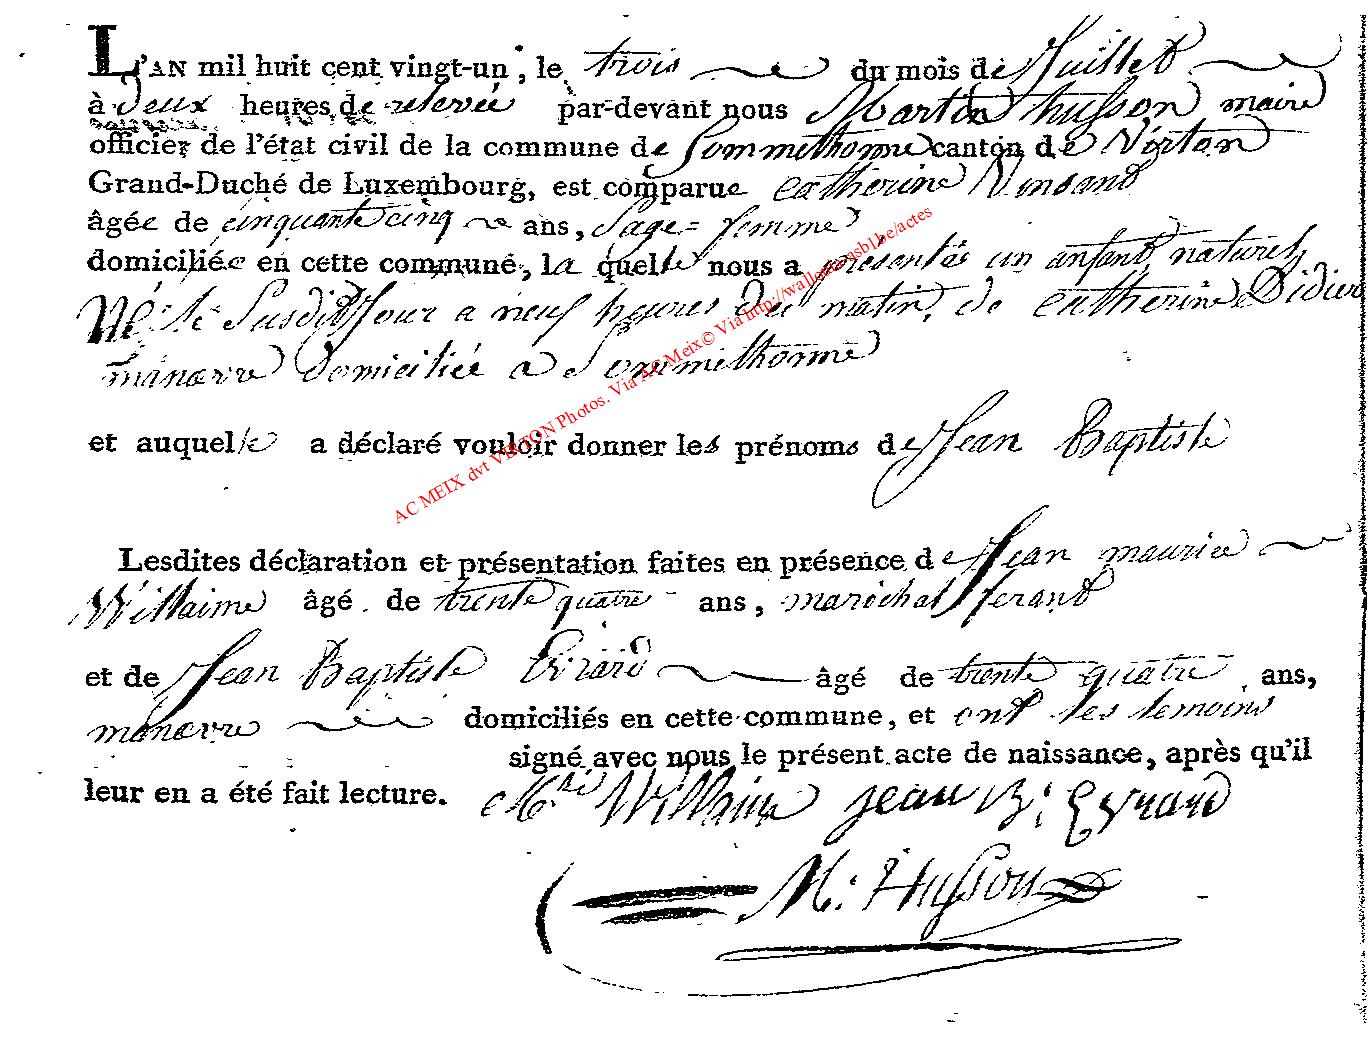 L'AN mil huit cent vingt-un, le trois du mois de Juillet
à deux heures de relevée par-devant nous Martin husson maire
officier de l'état civil de la commune de Sommethonne canton de Virton
Grand-Duché de Luxembourg, est comparue catherine Vinsant
âgée de cinquante cinq ans, Sage=femme
domiciliée en cette commune, la quelle nous a présentés un enfant naturel
Né le Susdit Jour a neuf heures du matin, de catherine Didier
manœvre domiciliée a Sommethonne
et auquelle a déclaré vouloir donner les prénoms de Jean Baptiste
Lesdites déclaration et présentation faites en présence de Jean maurice
Willaime âgé de trente quatre ans, maréchal ferant
et de Jean Baptiste Evrard âgé de trente quatre ans,
manœvre domiciliés en cette commune, et ont les temoins
signé avec nous le présent acte de naissance, après qu'il
leur en a été fait lecture. Willaime jean B: Evrard
M: Husson
AC MEIX dvt VIRTON Photos. Via AC Meix© Via http://wallonia.asbl.be/actes